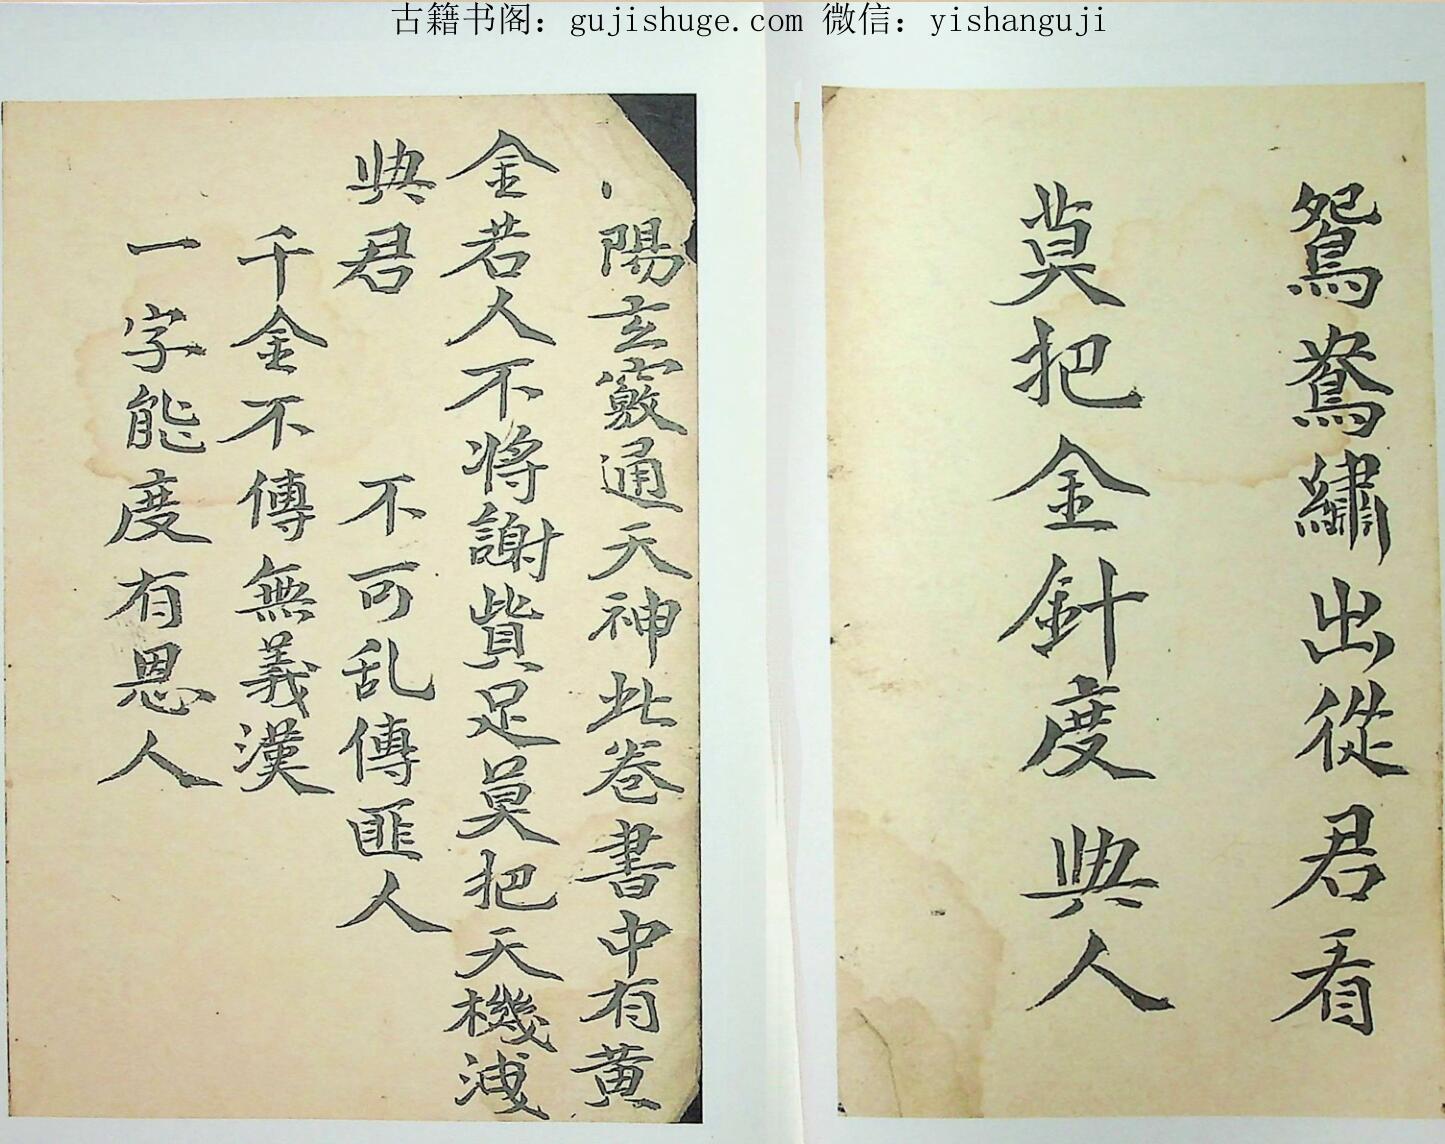 古籍书阁：gujishuge.com 微信：yishanguji
鴛鴦繡出從君看
莫把金針度與人
陽玄竅通天神此卷書中有黄
金若人不將謝貲足莫把天機洩
與君　不可乱傳匪人
千金不傳無義漢
一字能度有恩人